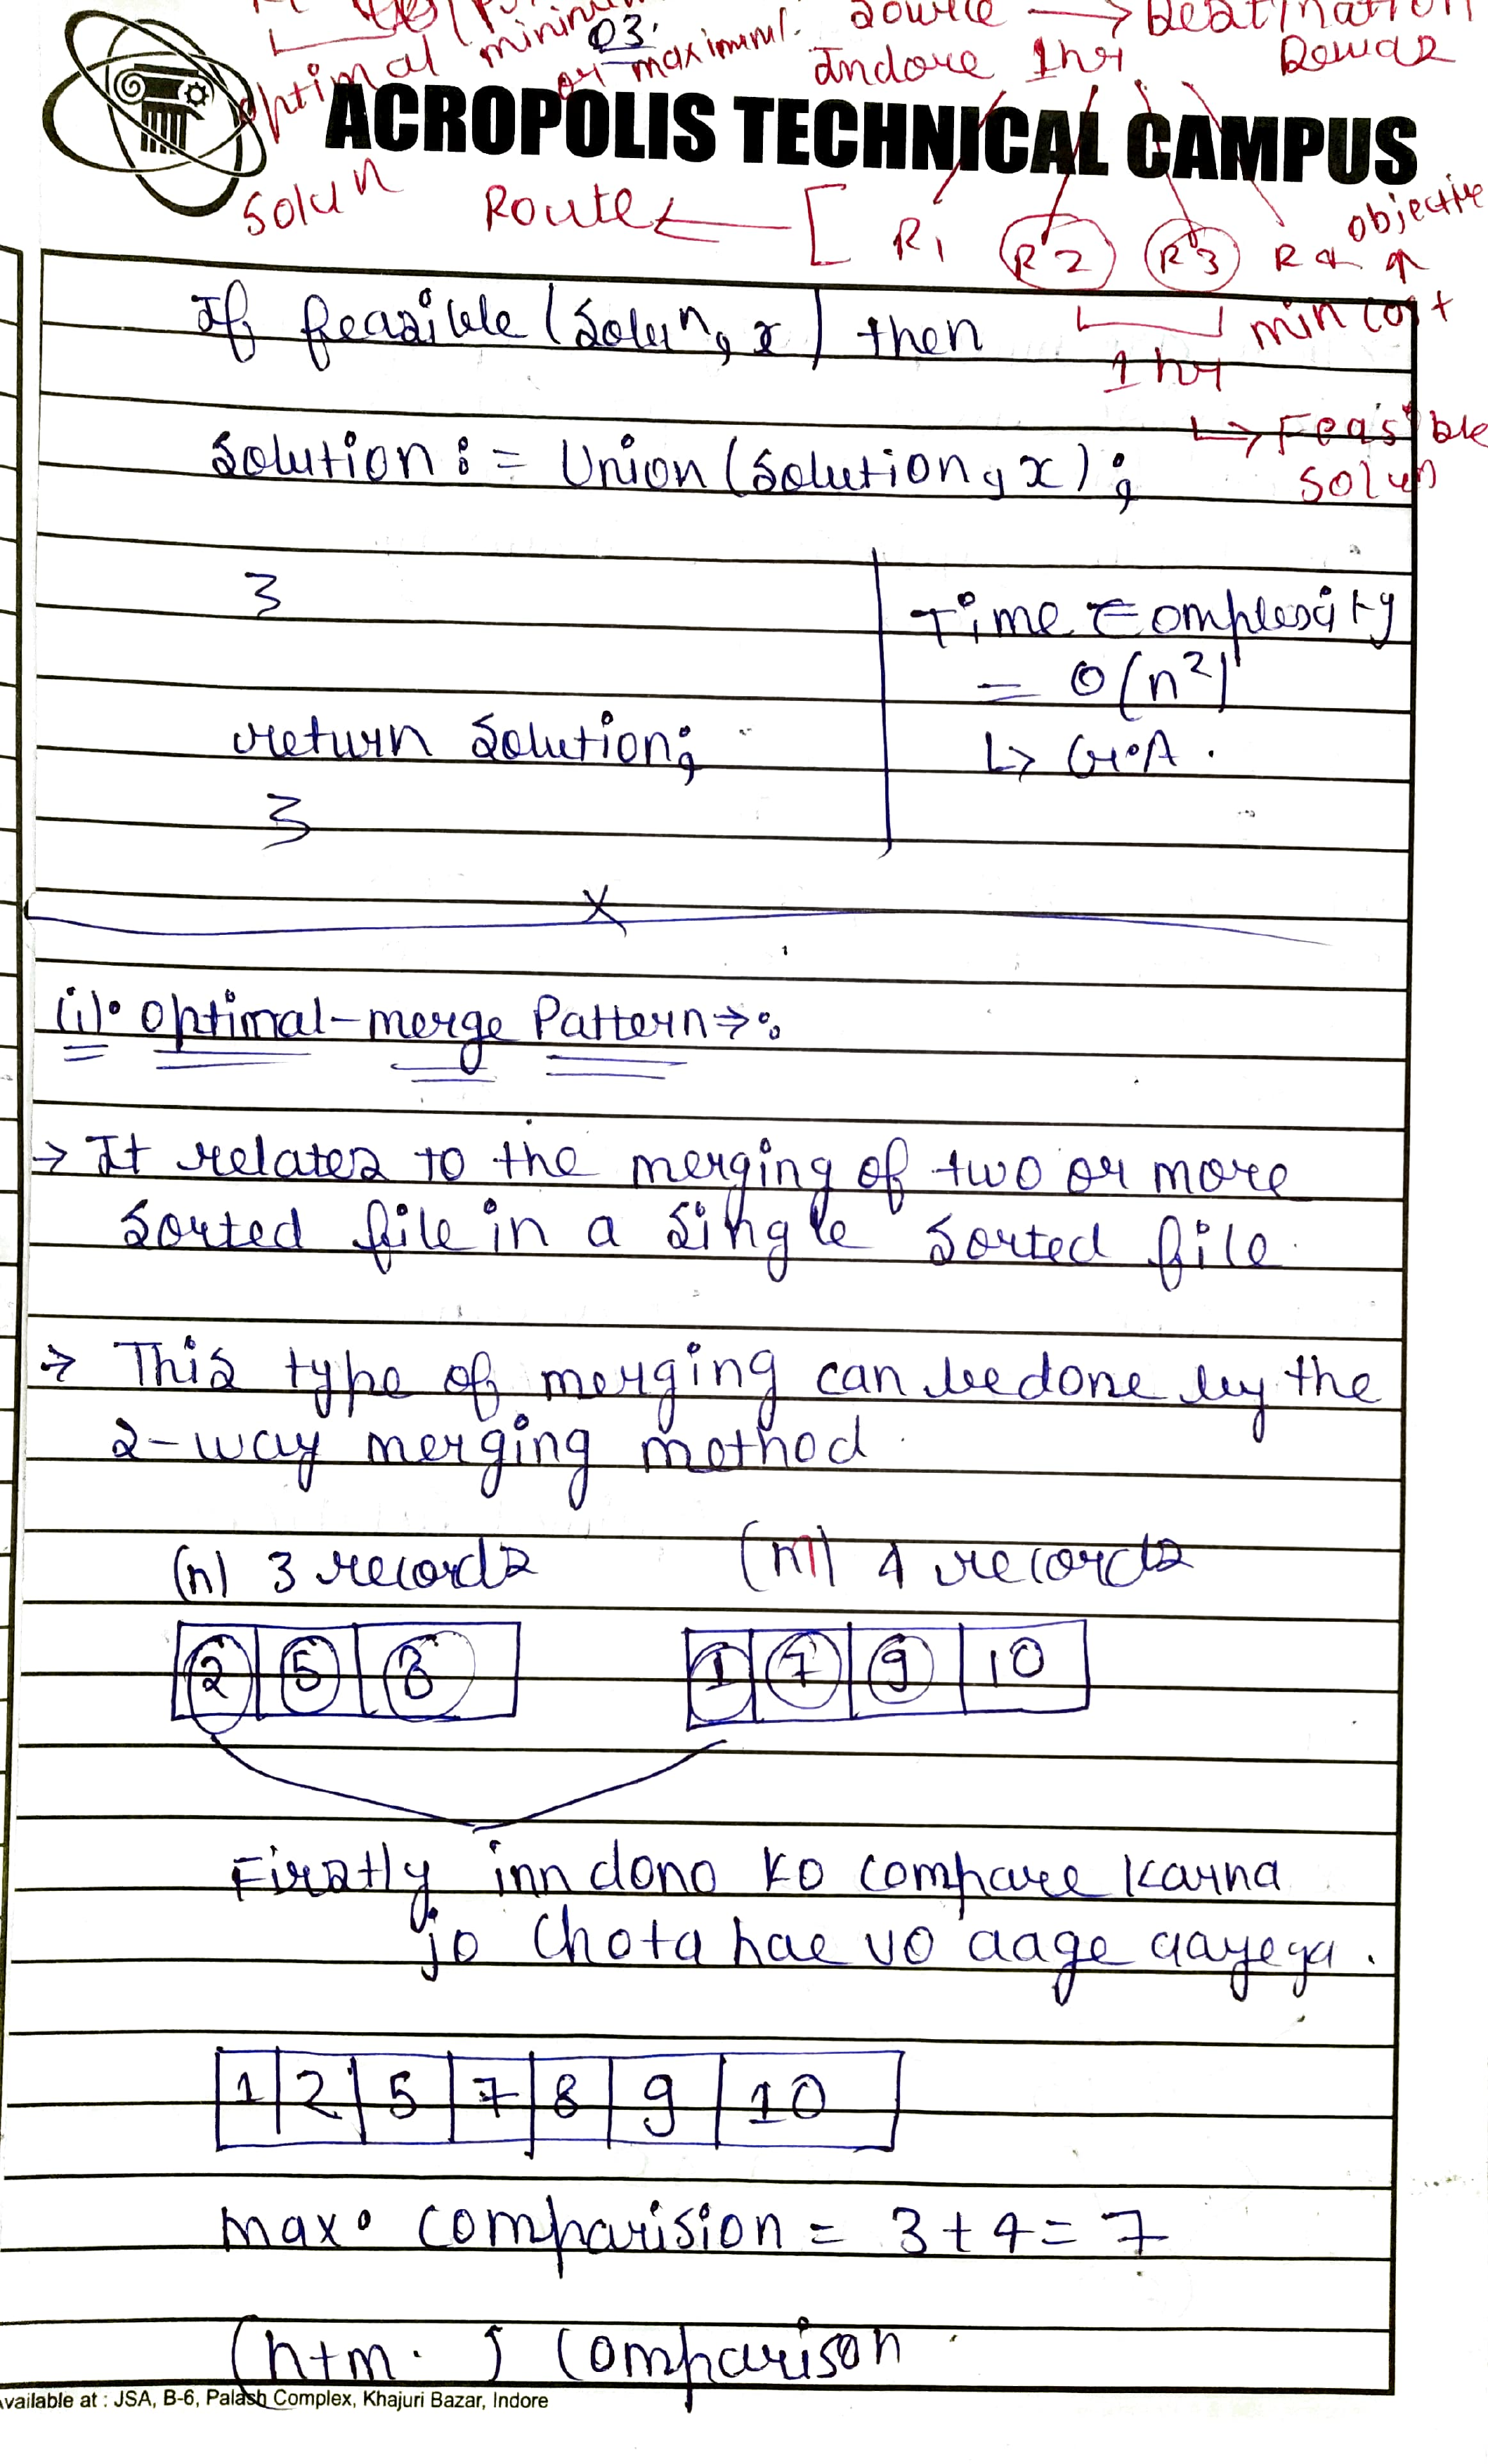 Source → Destination
optimal minimum
03.
or maximum.
Indore 1hr Dewas
ACROPOLIS TECHNICAL CAMPUS
Solun Route ← [ R1 R2 R3 R4
objective
↑
min cost
1 hr
↳ Feasible
Solun
If feasible (Solun, x) then
Solution := Union (Solution, x);
}
return Solution;
}
Time Complexity
= O(n²)
↳ Gr.A.
x
(i). Optimal-merge Pattern→:
→ It relates to the merging of two or more
Sorted file in a Single Sorted file.
→ This type of merging can be done by the
2-way merging method.
(n) 3 records (m) 4 records
2 5 8 1 7 9 10
Firstly inn dono ko compare karna
jo chota hae vo aage aayega.
1 2 5 7 8 9 10
max. comparision = 3+4=7
(n+m. ) comparison
Available at : JSA, B-6, Palash Complex, Khajuri Bazar, Indore